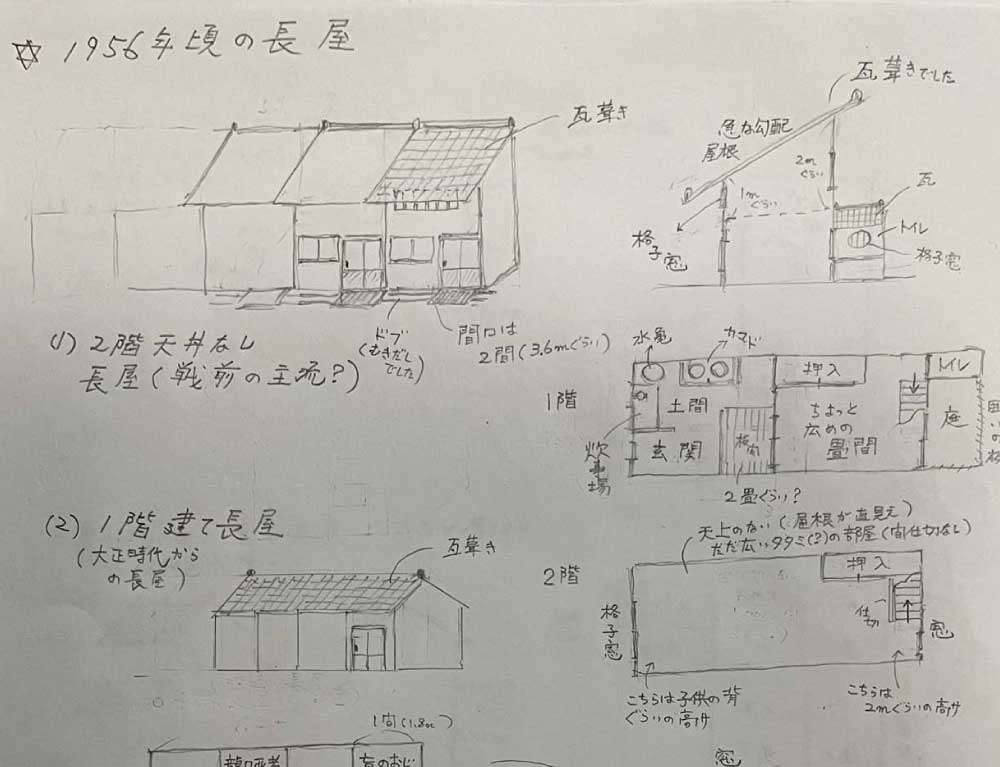 1956年頃の長屋
瓦葺き
ドブ
(むきだし
でした)
間口は
2間(3.6mぐらい)
(1) 2階天井なし
長屋(戦前の主流?)
瓦葺きでした
急な勾配
屋根
2m
ぐらい
1m
ぐらい
格子窓
瓦
トイレ
格子窓
1階
水亀
カマド
押入
トイレ
土間
ちょっと
広めの
畳間
庭
玄関
板間
炊事場
2畳ぐらい?
(2) 1階建て長屋
(大正時代から
の長屋)
瓦葺き
天上のない(屋根が直見え)
だだ広いタタミ(?)の部屋(間仕切なし)
2階
押入
仕切
格子窓
窓
こちらは子供の背
ぐらいの高サ
こちらは
2mぐらいの高サ
1間(1.8m)
窓